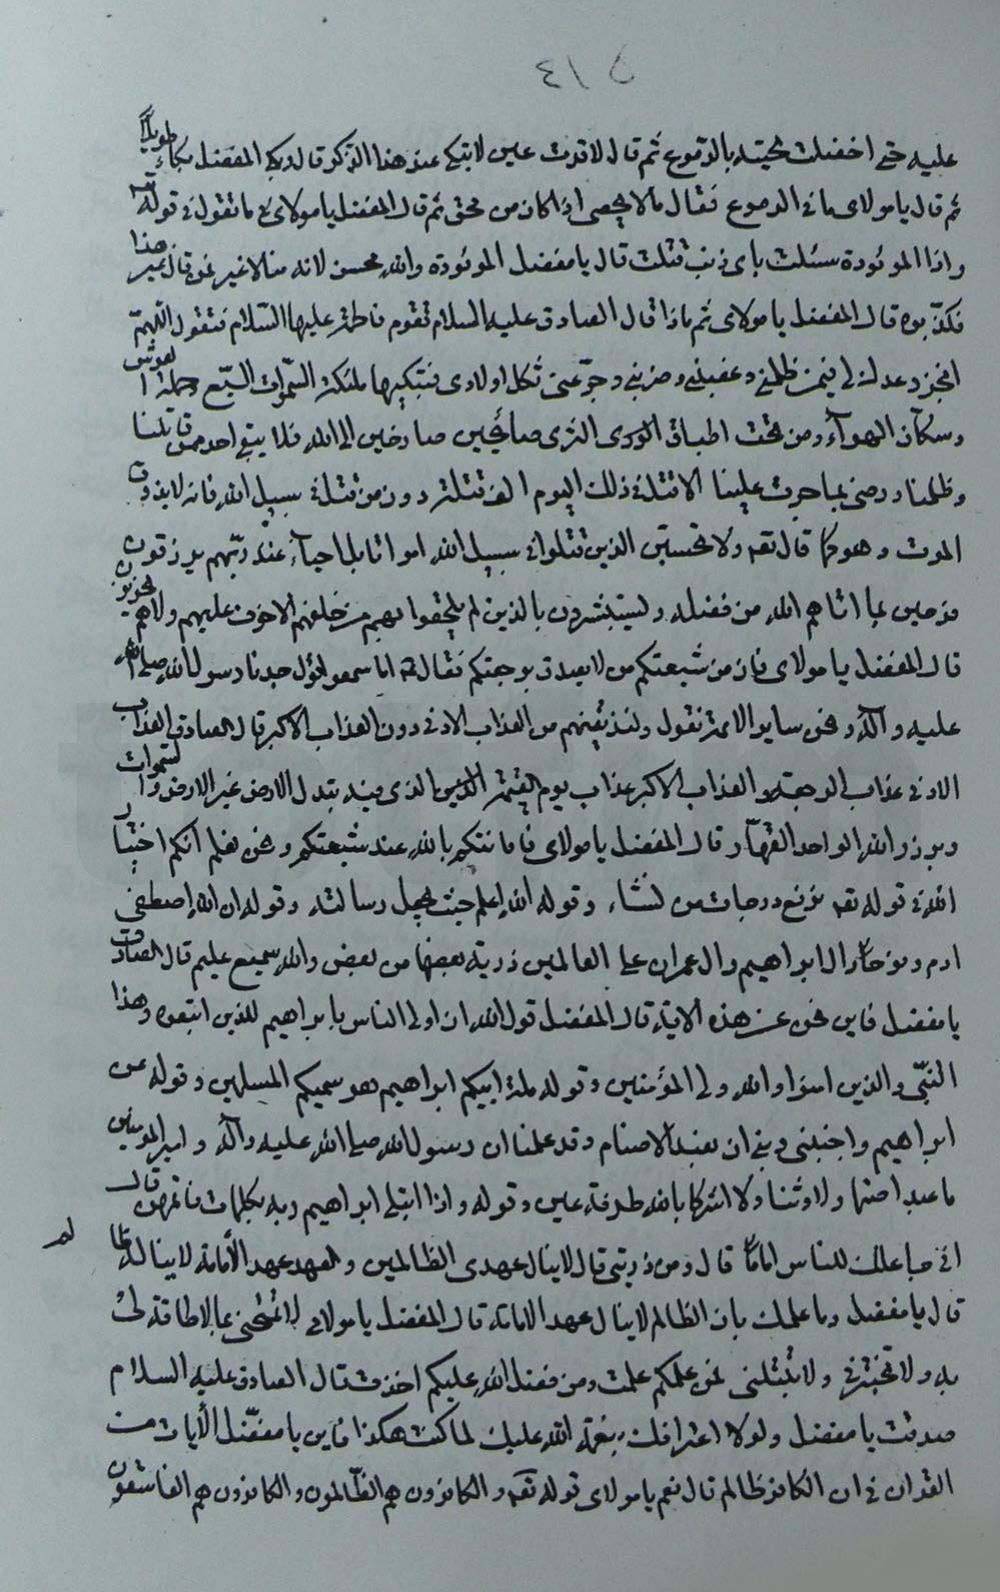 ٤١٥
عليه حتى اخضلت لحيته بالدموع ثم قال لا قرت عين لا تبكي عند هذا الذكر قال وبكى المفضل بكاء طويلاً
ثم قال يا مولاى ما في الدموع فقال ما لا يحصى اذا كان من محق ثم قال المفضل يا مولاى ما تقول في قوله تعه
واذا الموئودة سئلت باى ذنب قتلت قال يا مفضل الموئودة والله محسن لانه منا لا غير فمن قال غير هذا
فكذبوه قال المفضل يا مولاى ثم ماذا قال الصادق عليه السلام تقوم فاطمة عليها السلام فتقول اللهم
انجز وعدك لى فيمن ظلمنى وغصبنى وضربنى وجرّعنى ثكل اولادى فتبكيها ملئكة السموات السبع وحملة العرش
وسكان الهوآء ومن تحت اطباق الثرى صائحين صارخين الى الله فلا يبقى احد ممن قاتلنا
وظلمنا ورضى بما جرى علينا الا قتل في ذلك اليوم الف قتلة دون من قتل في سبيل الله فانه لا يذوق
الموت وهو كما قال تعه ولا تحسبن الذين قتلوا في سبيل الله امواتا بل احيآء عند ربهم يرزقون
فرحين بما اتاهم الله من فضله ويستبشرون بالذين لم يلحقوا بهم من خلفهم الا خوف عليهم ولا هم يحزنون
قال المفضل يا مولاى فان من شيعتكم من لا يعدق برجعتكم فقال اما سمعوا قول جدنا رسول الله صلى الله
عليه وآله ونحن ساير الائمة نقول ولنذيقنهم من العذاب الادنى دون العذاب الاكبر قال الصادق العذاب
الادنى عذاب الرجعة والعذاب الاكبر عذاب يوم القيمة الذى فيه تبدل الارض غير الارض والسموات
وبرزوا لله الواحد القهار قال المفضل يا مولاى فامامتكم بالله عند شيعتكم ونحن نعلم انكم اختيار
الله في قوله تعه نرفع درجات من نشاء وقوله الله اعلم حيث يجعل رسالته وقوله ان الله اصطفى
ادم ونوحا وال ابراهيم وال عمران على العالمين ذرية بعضها من بعض والله سميع عليم قال الصادق
يا مفضل فاين نحن عن هذه الاية قال المفضل قول الله ان اولى الناس بابراهيم للذين اتبعوه وهذا
النبّى والذين امنوا والله ولى المؤمنين وقوله ملة ابيكم ابراهيم هو سميكم المسلمين وقوله عن
ابراهيم واجنبنى وبنى ان نعبد الاصنام وقد علمنا ان رسول الله صلى الله عليه وآله وامير المؤمنين
ما عبدا صنما ولا وثنا ولا اشركا بالله طرفة عين وقوله واذا ابتلى ابراهيم ربه بكلمات فاتمهن قال
انى جاعلك للناس اماما قال ومن ذريتى قال لا ينال عهدى الظالمين والعهد عهد الأمامة لا يناله ظالم
قال يا مفضل وما علمك بان الظالم لا ينال عهد الامامة قال المفضل يا مولاى لا تمتحنى بما لا طاقة لى
به ولا تختبرنى ولا تبتلنى فمن علمكم علمت ومن فضل الله عليكم اخذت قال الصادق عليه السلام
صدقت يا مفضل ولولا اعترافك بنعمة الله عليك لما كنت هكذا فاين يا مفضّل الأيات من
القران في ان الكافر ظالم قال نعم يا مولاى قوله تعه والكافرون هم الظالمون والكافرون هم الفاسقون